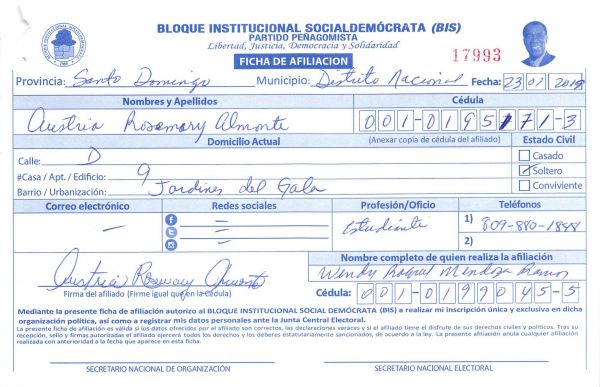 BLOQUE INSTITUCIONAL SOCIALDEMÓCRATA (BIS)
PARTIDO PEÑAGOMISTA
Libertad, Justicia, Democracia y Solidaridad
FICHA DE AFILIACION
17993
Provincia: Santo Domingo Municipio: Distrito Nacional Fecha: 23 01 2018
Nombres y Apellidos Cédula
Austria Rosemary Almonte 001-0195171-3
Domicilio Actual (Anexar copia de cédula del afiliado) Estado Civil
Calle: D Casado
#Casa / Apt. / Edificio: 9 Soltero
Barrio / Urbanización: Jardines del Gala Conviviente
Correo electrónico Redes sociales Profesión/Oficio Teléfonos
Estudiante 1) 809-880-1848
2)
Austria Rosemary Almonte
Firma del afiliado (Firme igual que en la Cédula)
Nombre completo de quien realiza la afiliación
Wendy Raquel Mendoza Ramos
Cédula: 001-0199045-5
Mediante la presente ficha de afiliación autorizo al BLOQUE INSTITUCIONAL SOCIAL DEMÓCRATA (BIS) a realizar mi inscripción única y exclusiva en dicha
organización política, así como a registrar mis datos personales ante la Junta Central Electoral.
La presente ficha de afiliación es válida si los datos ofrecidos por el afiliado son correctos, las declaraciones veraces y si el afiliado tiene el disfrute de sus derechos civiles y políticos. Tras su
recepción, sello y firmas autorizadas el afiliado ejercerá todos los derechos y los deberes estatutariamente sancionados, de acuerdo a la ley. La presente afiliación anula cualquier afiliación
realizada con anterioridad a la fecha que aparece en esta ficha.
SECRETARIO NACIONAL DE ORGANIZACIÓN SECRETARIO NACIONAL ELECTORAL